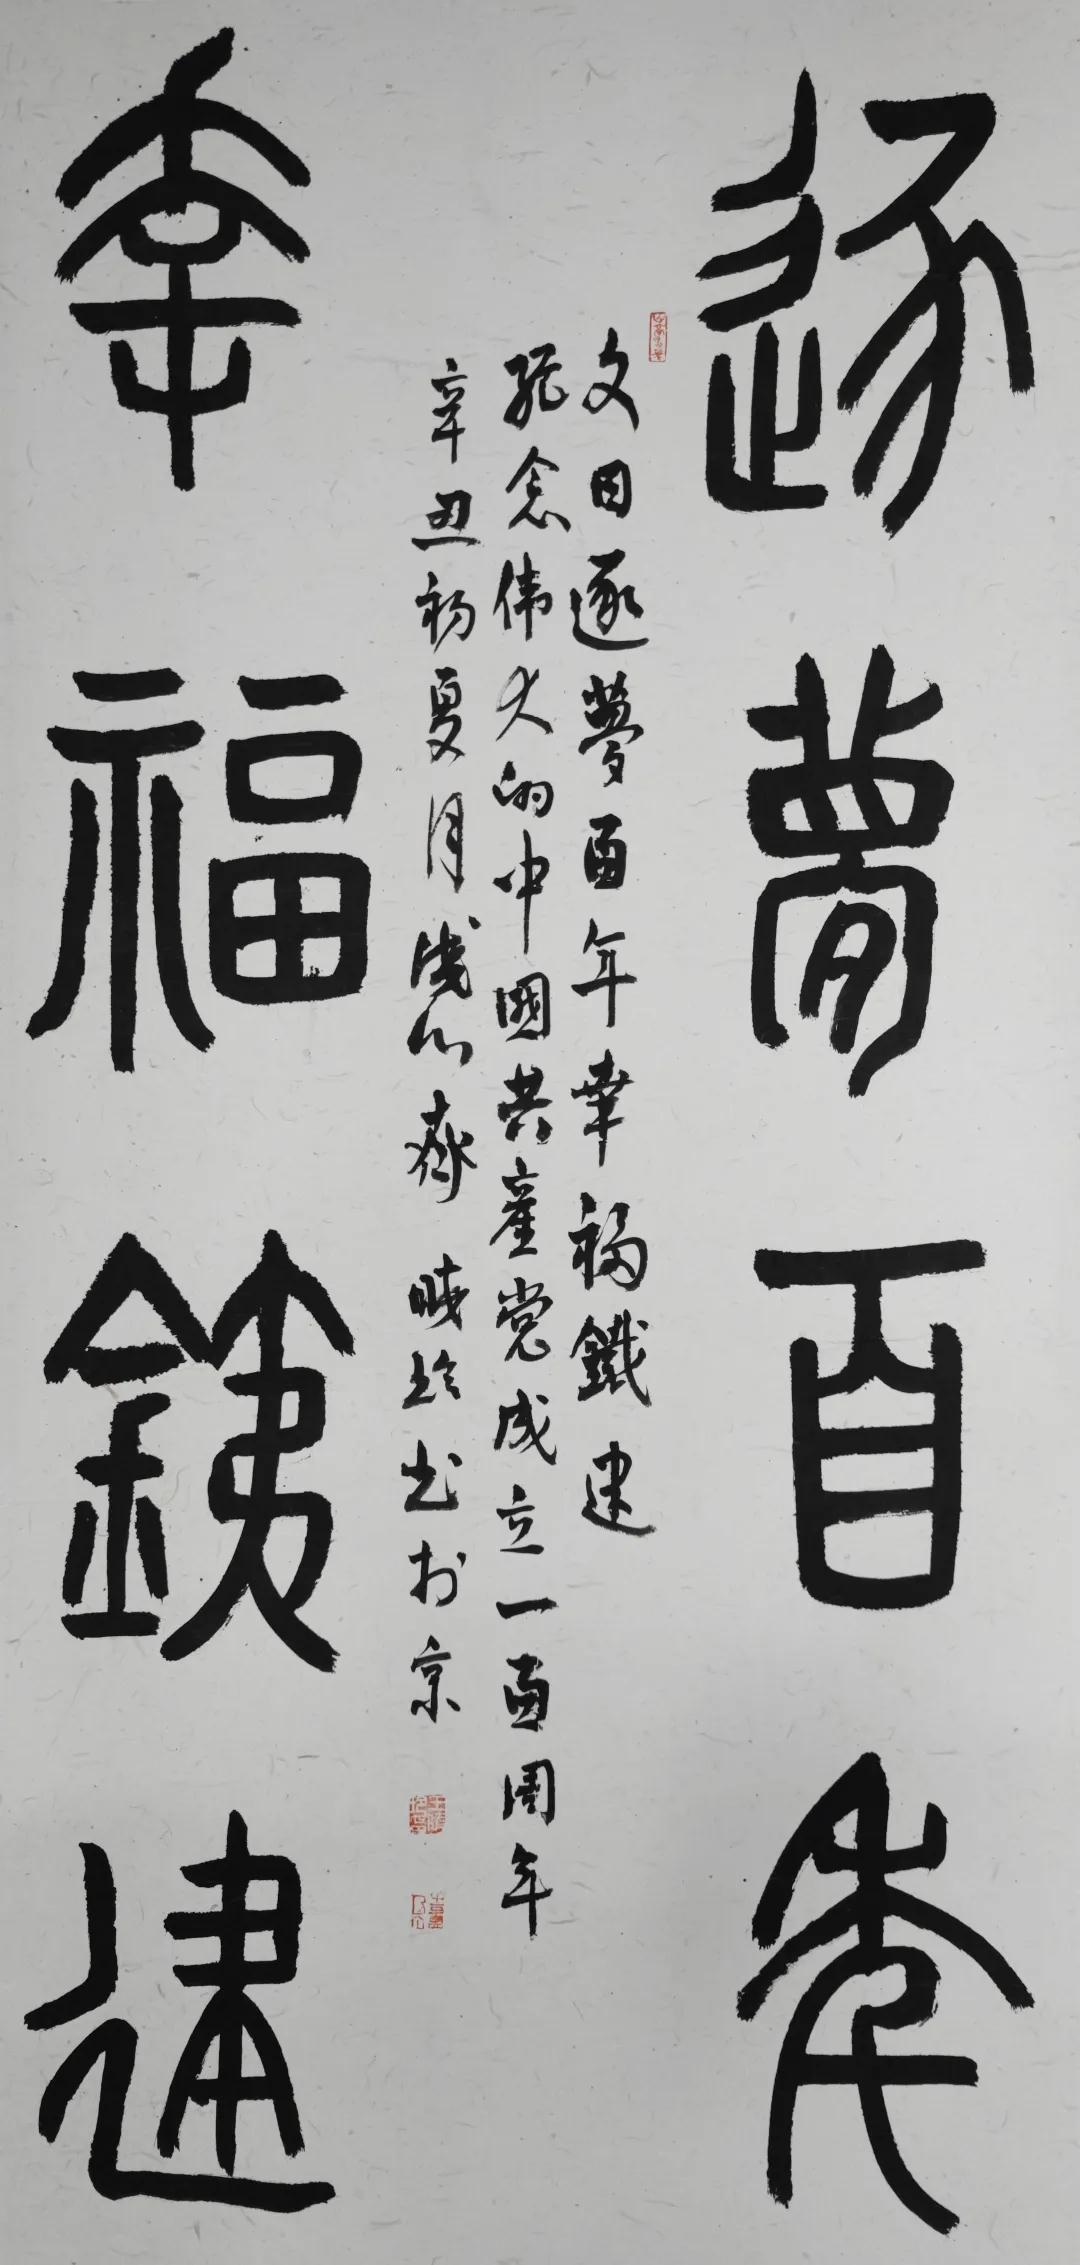 逐夢百年
文曰逐夢百年幸福鐵建
纪念伟大的中國共產党成立一百周年
辛丑初夏月 於京
幸福鐵建